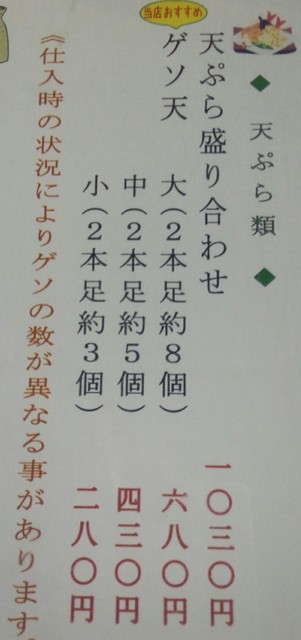 ◆ 天ぷら類 ◆
天ぷら盛り合わせ 一〇三〇円
当店おすすめ
ゲソ天 大(2本足約8個) 六八〇円
中(2本足約5個) 四三〇円
小(2本足約3個) 二八〇円
《仕入時の状況によりゲソの数が異なる事があります。